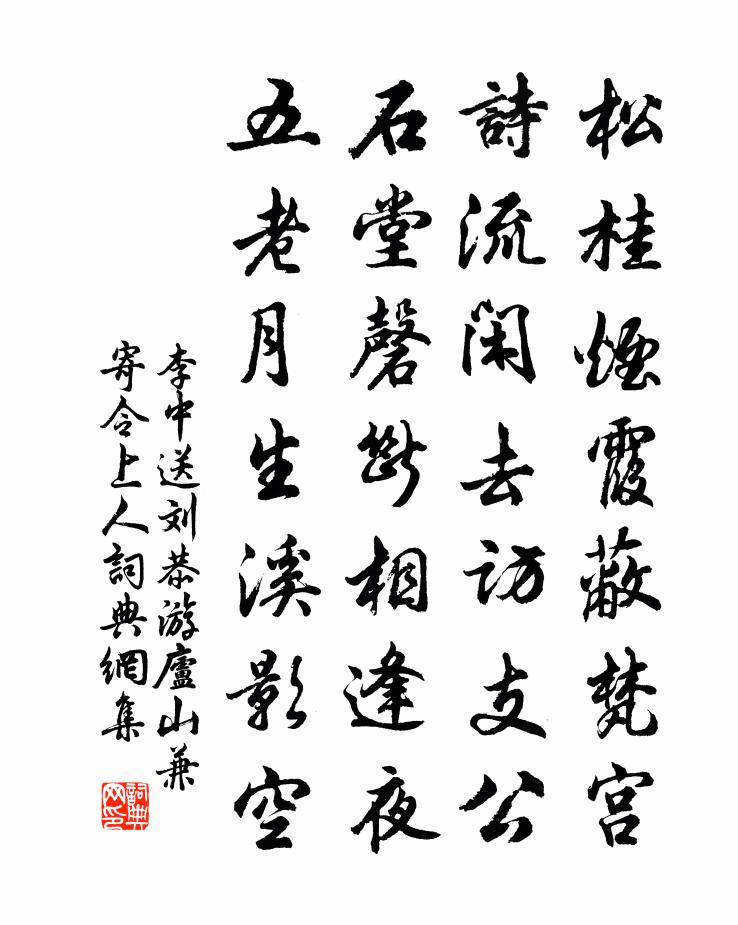 松桂煙霞蔽梵宮
詩流閑去訪支公
石堂磬斷相逢夜
五老月生溪影空
李中送刘恭游廬山兼
寄令上人詞典網集
詞典
网印